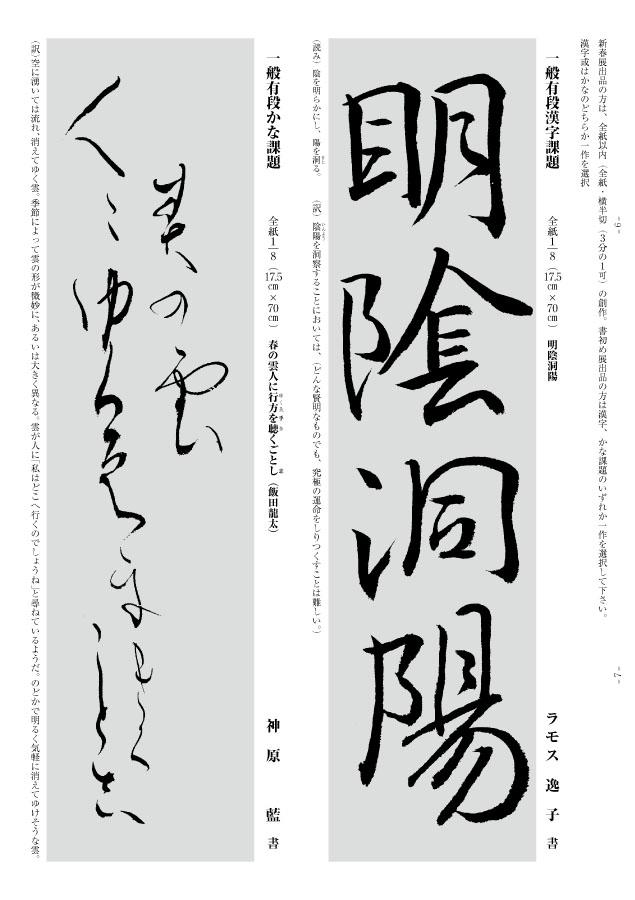 新春展出品の方は、全紙以内（全紙・横半切（3分の1可）の創作。書初め展出品の方は漢字、かな課題のいずれか一作を選択して下さい。
漢字或はかなのどちらか一作を選択
- 6 -
- 7 -
一般有段漢字課題　全紙1/8（17.5㎝×70㎝）　明陰洞陽　ラモス　逸子　書
明陰洞陽
（読み）陰を明らかにし、陽を洞る。
（訳）陰陽を洞察することにおいては、（どんな賢明なものでも、究極の運命をしりつくすことは難しい。）
一般有段かな課題　全紙1/8（17.5㎝×70㎝）　春の雲人に行方を聴くごとし（飯田龍太）　神原　藍　書
（訳）空に湧いては流れ、消えてゆく雲。季節によって雲の形が微妙に、あるいは大きく異なる。雲が人に「私はどこへ行くのでしょうね」と尋ねているようだ。のどかで明るく気軽に消えてゆけそうな雲。